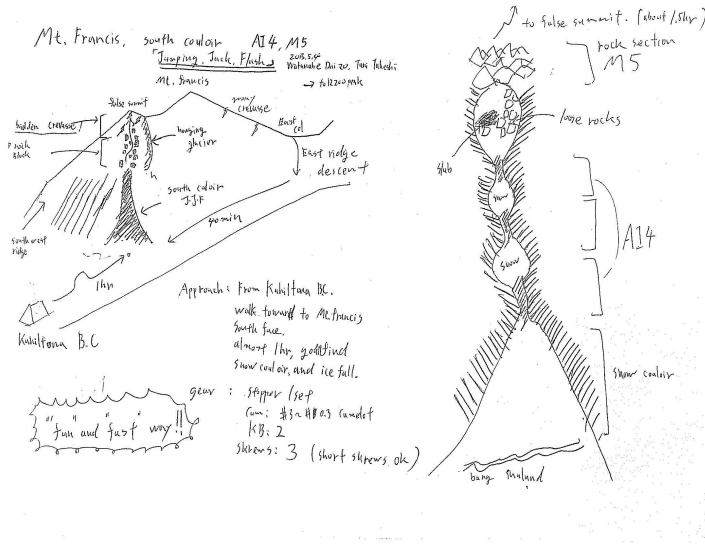 Mt. Francis, south couloir AI4, M5
「Jumping, Jack, Flash」
2015.5.4
Watanabe Daizo, Tani Takeshi
Mt. Francis
→ to 12200 peak
false summit
many crevasse
hidden crevasse!
rock block
hanging glacier
East col
East ridge descent
south coloir
J.J.F
southwest ridge
40min
1hr
Kahiltana B.C
Approach: From Kahiltana B.C.
walk toward to Mt. Francis
south face.
almost 1hr, you find
snow couloir, and ice fall.
gear : stopper 1set
Cam: #3~#0.3 camelot
KB: 2
skrews: 3 (short skrews ok)
"fun" and "fast" way!!
to false summit. (about 1.5hr)
rock section
M5
loose rocks
slub
snow
snow
AI4
snow couloir